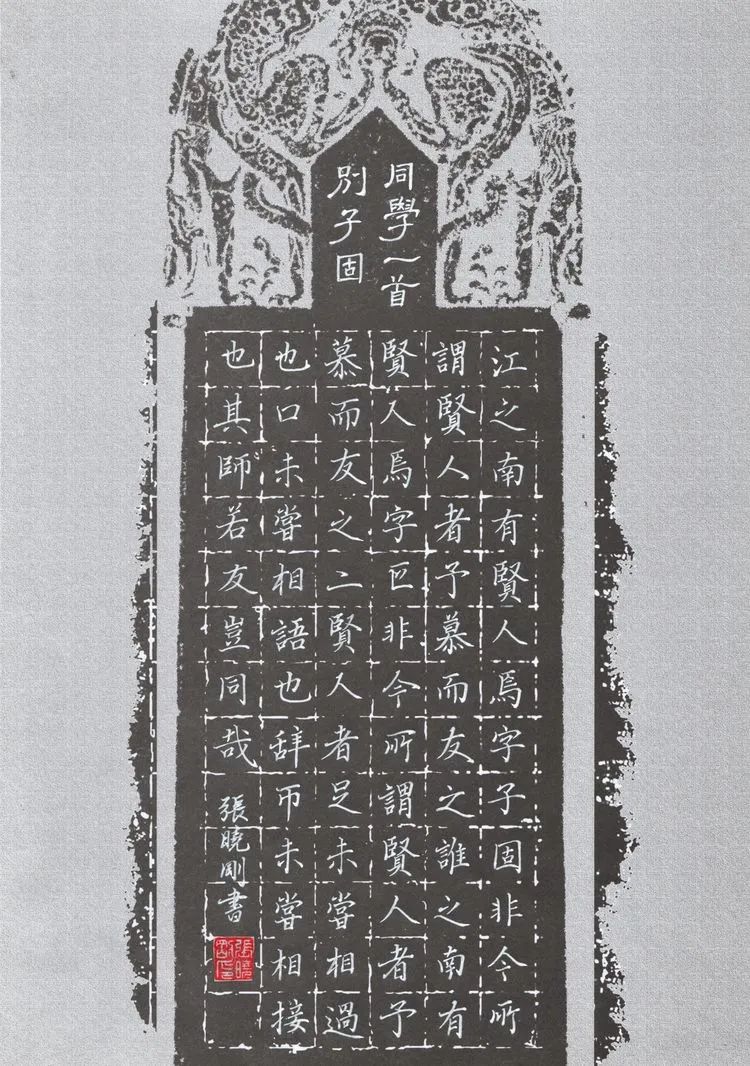 同學一首
別子固
江之南有賢人焉字子固非今所
謂賢人者予慕而友之誰之南有
賢人焉字非今所謂賢人者予
慕而友之二賢人者足未嘗相過
也口未嘗相語也辞币未嘗相接
也其師若友豈同哉
張曉剛書
張曉剛印